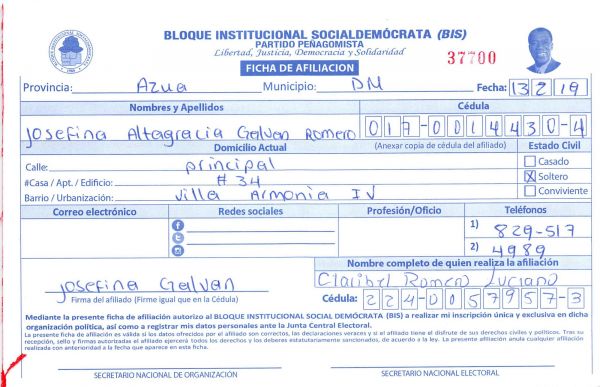 BLOQUE INSTITUCIONAL SOCIALDEMÓCRATA (BIS)
PARTIDO PEÑAGOMISTA
Libertad, Justicia, Democracia y Solidaridad
37700
FICHA DE AFILIACION
Provincia: Azua Municipio: DM Fecha: 13 2 19
Nombres y Apellidos Cédula
Josefina Altagracia Galvan Romero 017-0014430-4
Domicilio Actual (Anexar copia de cédula del afiliado) Estado Civil
Calle: principal Casado
#Casa / Apt. / Edificio: # 34 X Soltero
Barrio / Urbanización: Villa Armonia IV Conviviente
Correo electrónico Redes sociales Profesión/Oficio Teléfonos
1) 829-517
2) 4989
Nombre completo de quien realiza la afiliación
Josefina Galvan Claribel Romero Luciano
Firma del afiliado (Firme igual que en la Cédula) Cédula: 224-0057957-3
Mediante la presente ficha de afiliación autorizo al BLOQUE INSTITUCIONAL SOCIAL DEMÓCRATA (BIS) a realizar mi inscripción única y exclusiva en dicha
organización política, así como a registrar mis datos personales ante la Junta Central Electoral.
La presente ficha de afiliación es válida si los datos ofrecidos por el afiliado son correctos, las declaraciones veraces y si el afiliado tiene el disfrute de sus derechos civiles y políticos. Tras su
recepción, sello y firmas autorizadas el afiliado ejercerá todos los derechos y los deberes estatutariamente sancionados, de acuerdo a la ley. La presente afiliación anula cualquier afiliación
realizada con anterioridad a la fecha que aparece en esta ficha.
SECRETARIO NACIONAL DE ORGANIZACIÓN SECRETARIO NACIONAL ELECTORAL